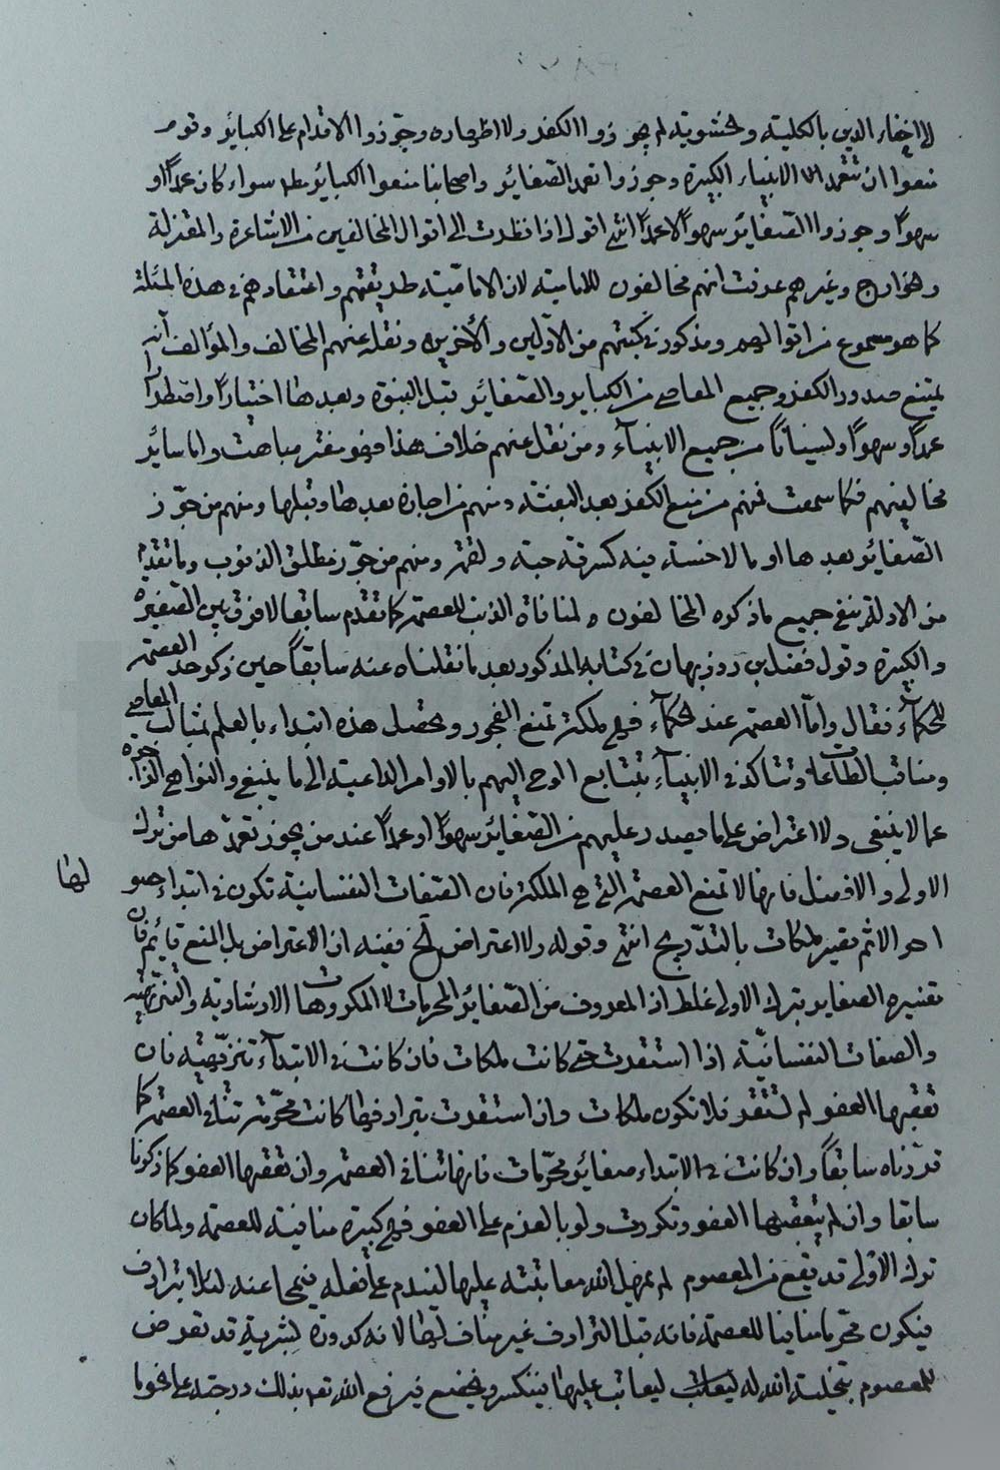 لا اخفاء الدين بالكلية والحشوية لم يجوزوا الكفر ولا اظهاره وجوزوا الاقدام على الكبائر وقوم
منعوا ان تتعمد الانبياء الكبيرة وجوزوا تعمد الصغائر واصحابنا منعوا الكبائر مط سواء كان عمدًا او
سهوًا وجوزوا الصغائر سهوًا لا عمدًا انتهى اقول اذا نظرت الى اقوال المخالفين من الاشاعرة والمعتزلة
والخوارج وغيرهم عرفت انهم مخالفون للامامية لان الامامية طريقتهم واعتقادهم في هذه المسئلة
كما هو مسموع من اقوالهم ومذكور في كتبهم من الاولين والآخرين ونقله عنهم المخالف والمؤالف انه
يمتنع صدور الكفر وجميع المعاصي من الكبائر والصغائر قبل النبوة وبعدها اختيارًا واضطرارا
عمدًا وسهوًا ونسيانًا من جميع الانبياء ومن نقل عنهم خلاف هذا فهو مفتر مباهت واما سائر
مخالفيهم فكما سمعت فمنهم من منع الكفر بعد البعثة ومنهم من اجازه بعدها وقبلها ومنهم من جوز
الصغائر بعدها او ما لا خسة فيه كسرقة حبة ولقمة ومنهم من جوز مطلق الذنوب وما تقدم
من الادلة ينفي جميع ما ذكره المخالفون ولمنافاة الذنب للعصمة كما تقدم سابقا لا فرق بين الصغيرة
والكبيرة وقول فضل بن روزبهان في كتابه المذكور بعد ما نقلناه عنه سابقًا حين ذكر حد العصمة
للحكماء فقال واما العصمة عند الحكماء فهي ملكة تمنع الفجور وتحصل هذه ابتداء بالعلم بمثالب المعاصي
ومناقب الطاعات وتتأكد في الانبياء بتتابع الوحي اليهم بالاوامر الداعية الى ما ينبغي والنواهي الزاجرة
عما لا ينبغي ولا اعتراض على ما يصدر عليهم من الصغائر سهوًا او عمدًا عند من يجوز تعمدها من ترك
الاولى والافضل فانها لا تمنع العصمة التي هي الملكة فان الصفات النفسانية تكون في ابتداء حصو لها
ا هو الاثم فقير ملكات بالتدريج انتهى وقوله ولا اعتراض الخ ففيه ان الاعتراض بل المنع قائم فان
تفسيره الصغاير بترك الاولى غلط اذ المعروف من الصغائر المحرمات لا المكروهات الارشادية والتنزيهية
والصفات النفسانية اذا استقرت حتى كانت ملكات فان كانت في الابتداء تنزيهية فان
تعقبها العفو لم تستقر فلا تكون ملكات وان استقرت بترادفها كانت محرمة تنافي العصمة كما
قررناه سابقًا وان كانت في الابتداء صغائر محرمات فانها تنافي العصمة وان تعقبها العفو كما ذكرنا
سابقا وان لم يتعقبها العفو وتكررت ولو بالعزم على العفو فهي كبيرة منافية للعصمة ولما كان
ترك الاولى قد يقع من المعصوم لم يمهل الله معاتبته عليها ليندم على فعله فيمحا عنه لئلا يترادف
فيكون محرما منافيا للعصمة فانه قبل الترادف غير مناف لها لانه كدورة بشرية قد تعرض
للمعصوم بتخلية الله له ليعاتب عليها فينكسر ويخضع فيرفع الله تعه بذلك درجته على نحو ما